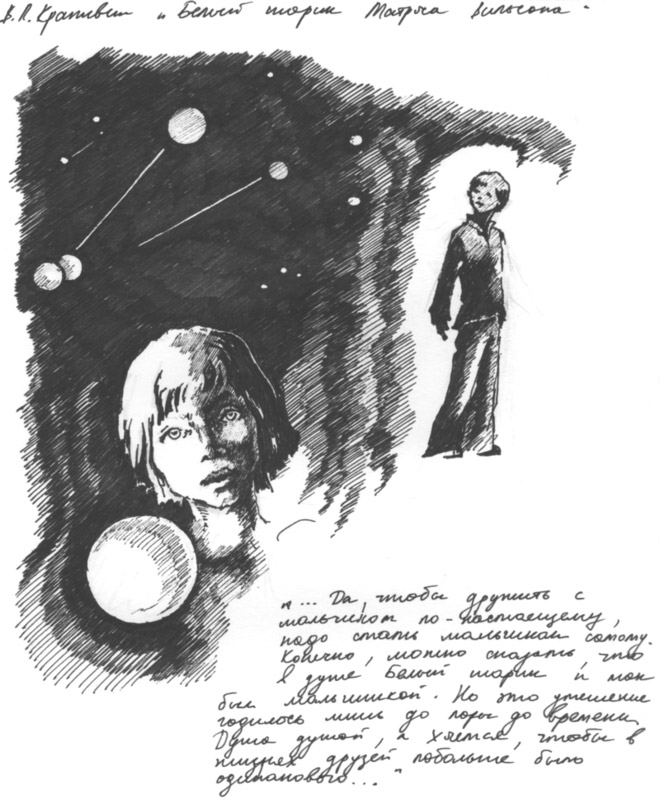 В.П. Крапивин „Белый шарик Матроса Вильсона"
„... Да, чтобы дружить с
мальчиком по-настоящему,
надо стать мальчиком самому.
Конечно, можно сказать, что
в душе Белый шарик и так
был мальчишкой. Но это утешение
годилось лишь до поры до времени
Душа душой, а хочется, чтобы в
жизнях друзей побольше было
одинакового..."